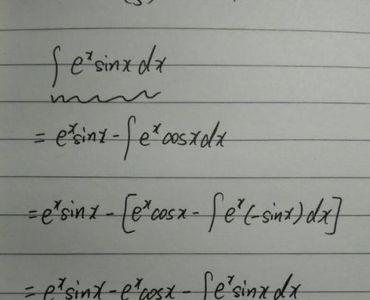 ∫ eˣ sinx dx
= eˣsinx - ∫ eˣ cosx dx
= eˣ sinx - [eˣ cosx - ∫ eˣ (-sinx) dx]
= eˣ sinx - eˣ cosx - ∫ eˣ sinx dx